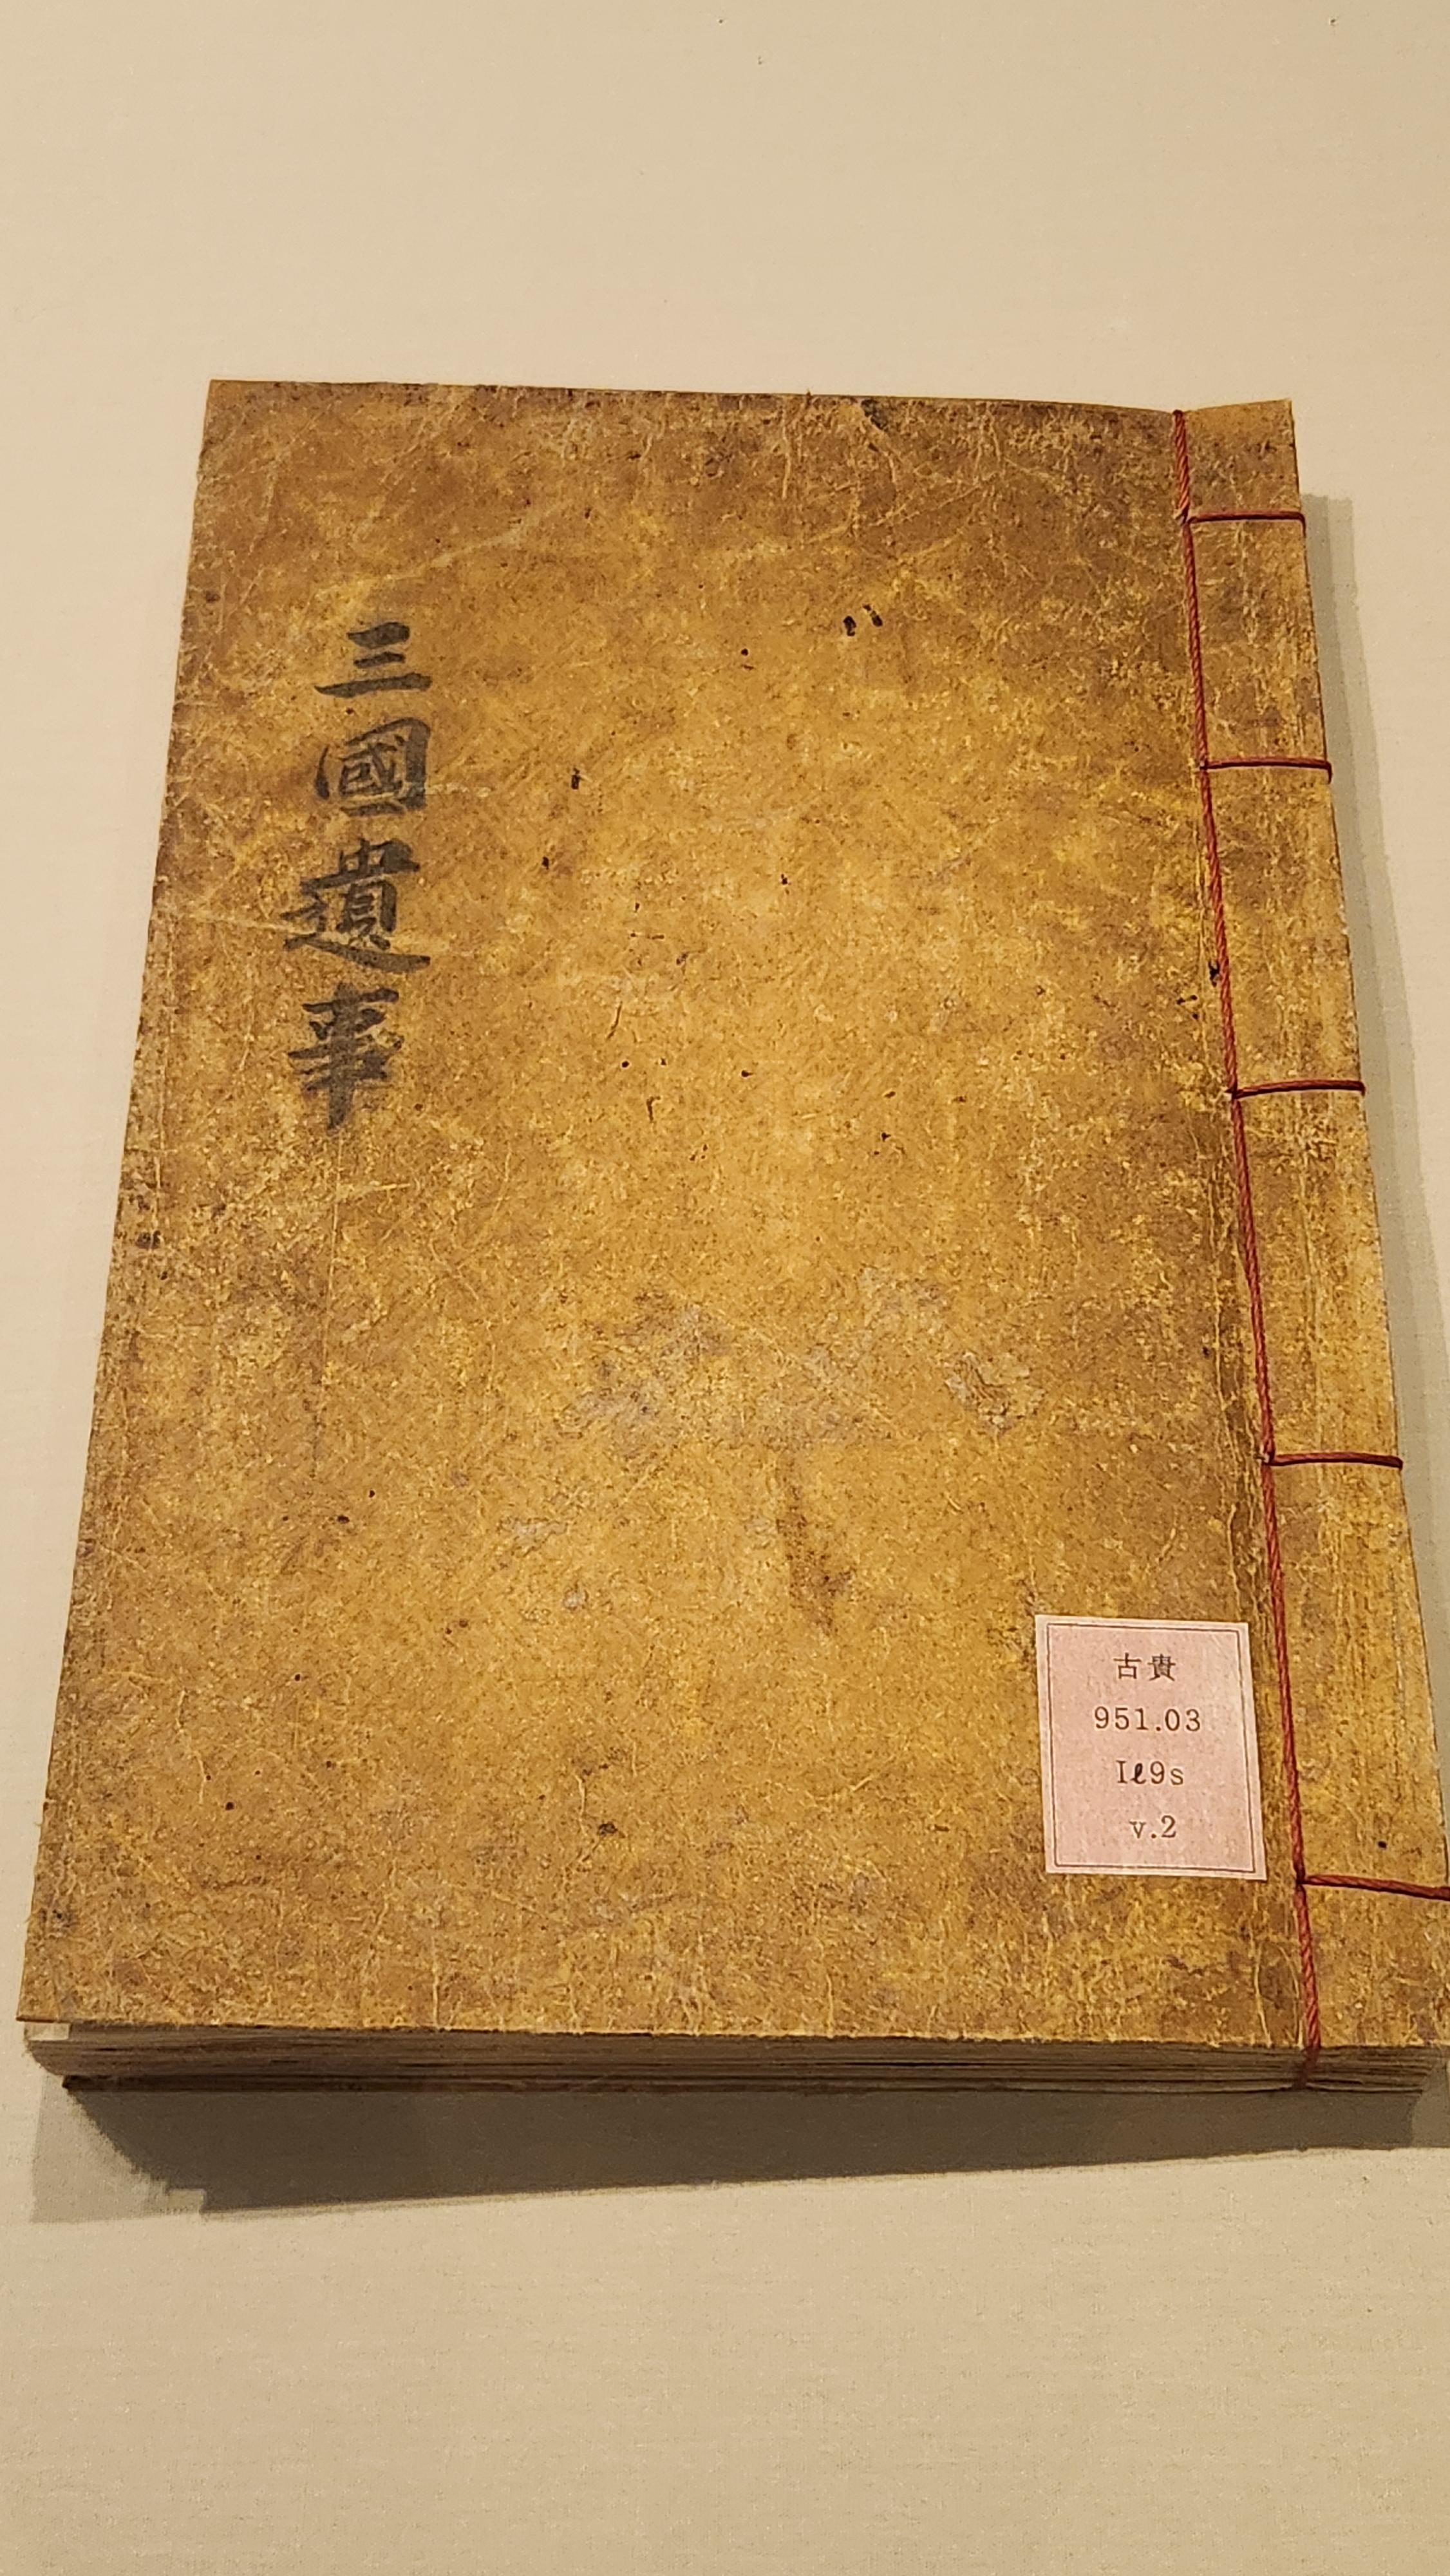 三國遺事
古貴
951.03
Iℓ9s
v.2